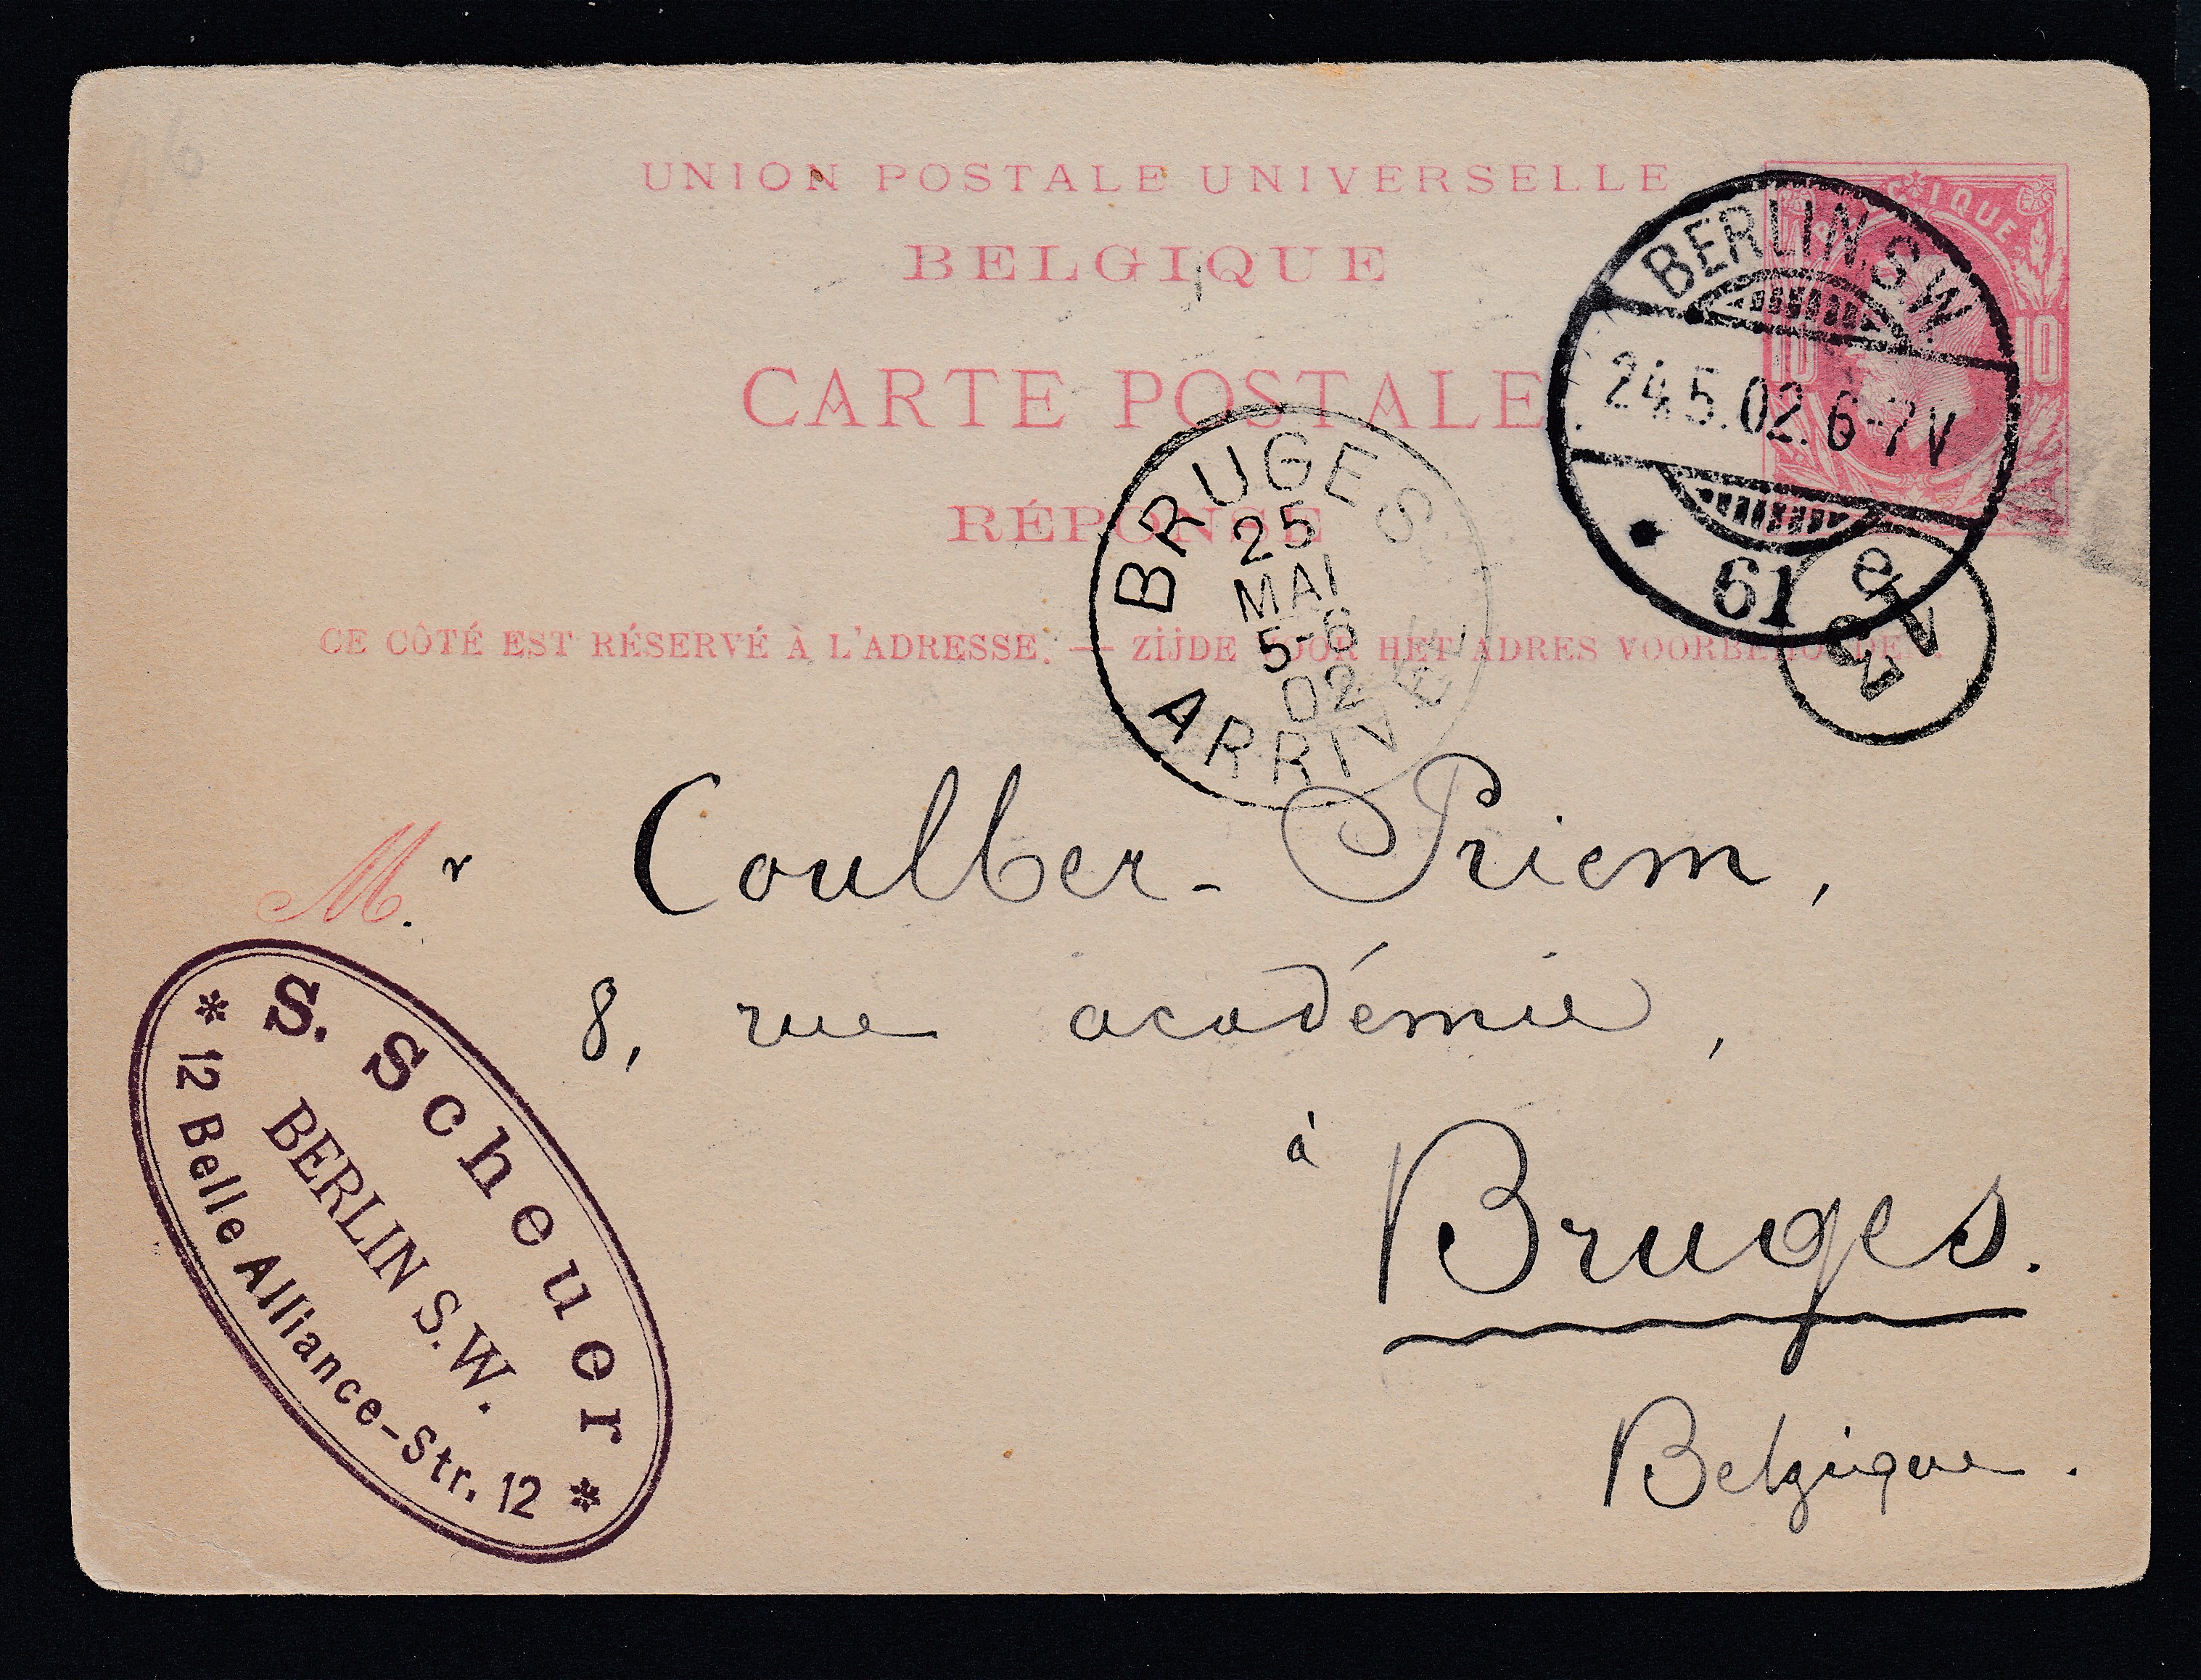 UNION POSTALE UNIVERSELLE
BELGIQUE
CARTE POSTALE
RÉPONSE
CE CÔTÉ EST RÉSERVÉ À L'ADRESSE. — ZIJDE VOOR HET ADRES VOORBEHOUDEN.
10 10
BERLIN. S.W.
24.5.02. 6-7V
* 61 e
BRUGES
25
MAI
5-6
02
ARRIVÉE
M.r Coulber-Priem,
8, rue académie,
à Bruges.
Belgique.
* S. Scheuer *
BERLIN S.W.
12 Belle Alliance-Str. 12